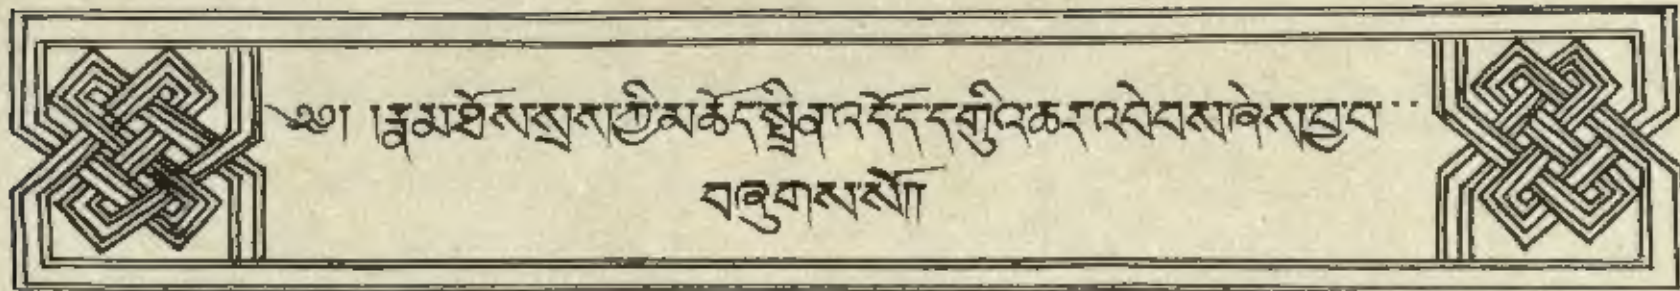 ༄༅། །རྣམ་ཐོས་སྲས་ཀྱི་མཆོད་སྤྲིན་འདོད་དགུའི་ཆར་འབེབས་ཞེས་བྱ་བ་་
བཞུགས་སོ།།